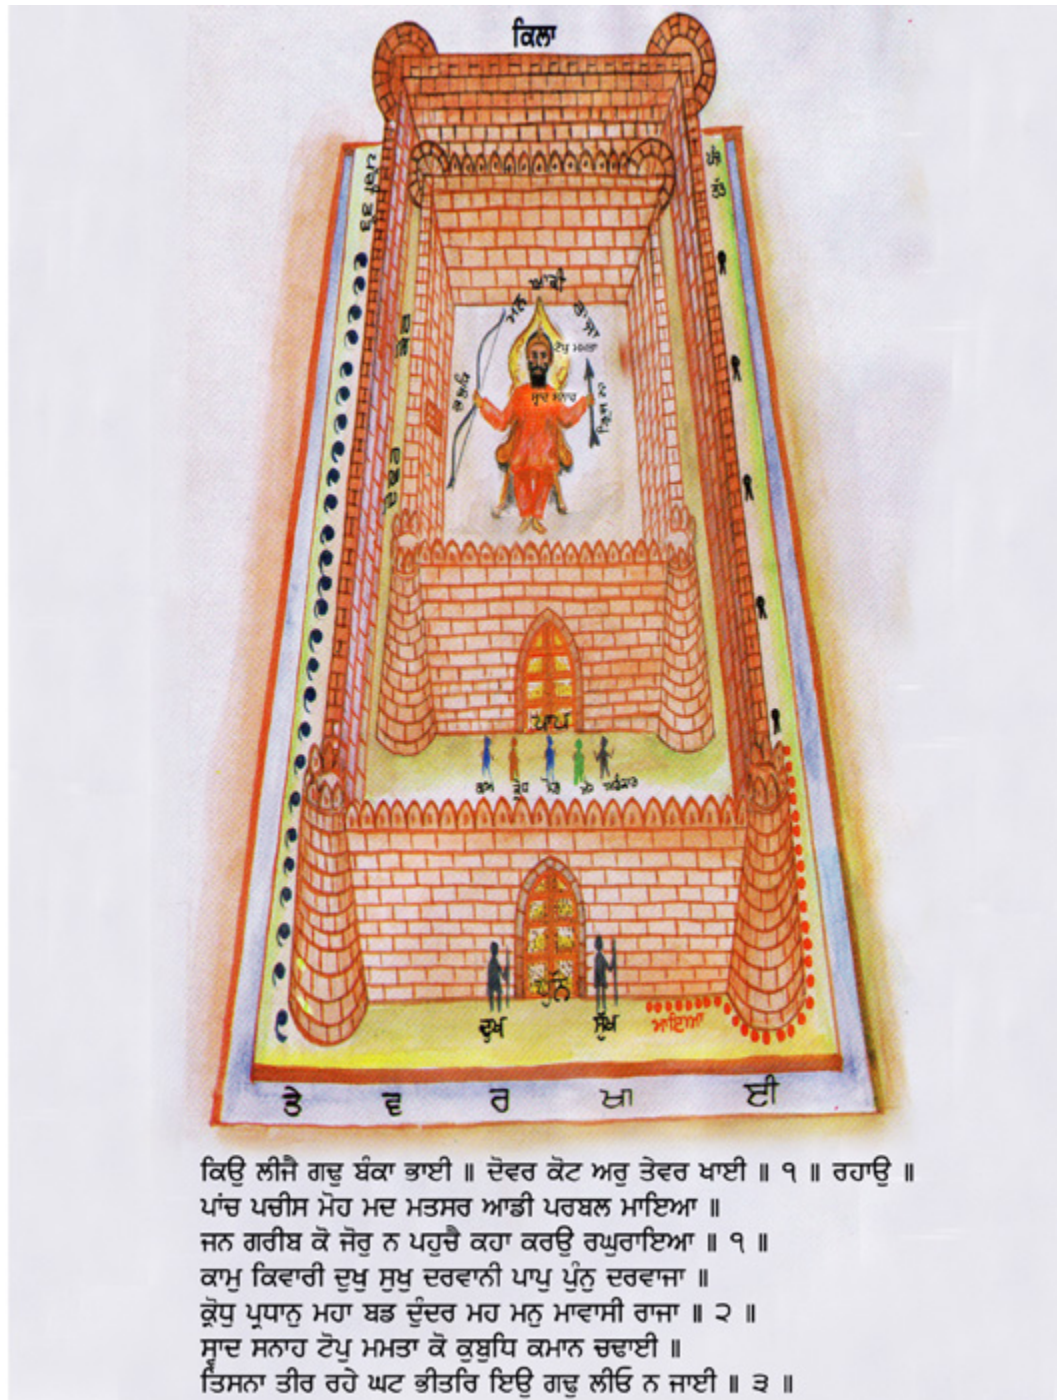 ਕਿਲਾ
ਪੰਜ
ਤੱਤ
ਮਨ ਆਕੀ ਰਾਜਾ
ਟੋਪੁ ਮਮਤਾ
ਸ੍ਵਾਦ ਸਨਾਹ
ਪਾਪ
ਕਾਮ ਕ੍ਰੋਧ ਮੋਹ ਲੋਭ ਅਹੰਕਾਰ
ਪੁੰਨ
ਦੁਖ ਸੁੱਖ ਮਾਇਆ
ਤੇ ਵ ਰ ਖਾ ਈ
ਕਿਉ ਲੀਜੈ ਗਢੁ ਬੰਕਾ ਭਾਈ ॥ ਦੋਵਰ ਕੋਟ ਅਰੁ ਤੇਵਰ ਖਾਈ ॥ ੧ ॥ ਰਹਾਉ ॥
ਪਾਂਚ ਪਚੀਸ ਮੋਹ ਮਦ ਮਤਸਰ ਆਡੀ ਪਰਬਲ ਮਾਇਆ ॥
ਜਨ ਗਰੀਬ ਕੋ ਜੋਰੁ ਨ ਪਹੁਚੈ ਕਹਾ ਕਰਉ ਰਘੁਰਾਇਆ ॥ ੧ ॥
ਕਾਮੁ ਕਿਵਾਰੀ ਦੁਖੁ ਸੁਖੁ ਦਰਵਾਨੀ ਪਾਪੁ ਪੁੰਨੁ ਦਰਵਾਜਾ ॥
ਕ੍ਰੋਧੁ ਪ੍ਰਧਾਨੁ ਮਹਾ ਬਡ ਦੁੰਦਰ ਮਹ ਮਨੁ ਮਾਵਾਸੀ ਰਾਜਾ ॥ ੨ ॥
ਸ੍ਵਾਦ ਸਨਾਹ ਟੋਪੁ ਮਮਤਾ ਕੋ ਕੁਬੁਧਿ ਕਮਾਨ ਚਢਾਈ ॥
ਤਿਸਨਾ ਤੀਰ ਰਹੇ ਘਟ ਭੀਤਰਿ ਇਉ ਗਢੁ ਲੀਓ ਨ ਜਾਈ ॥ ੩ ॥